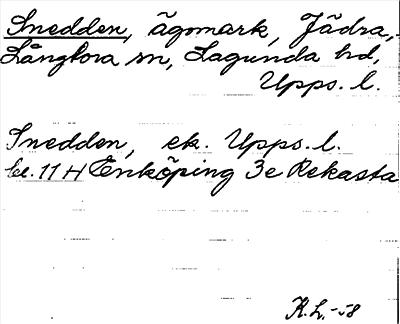 Snedden, ägomark, Jädra,
Långtora sn, Lagunda hd,
Upps. l.
Snedden, ek. Upps. l.
bl. 11 H Enköping 3e Rekasta
R.L. -58